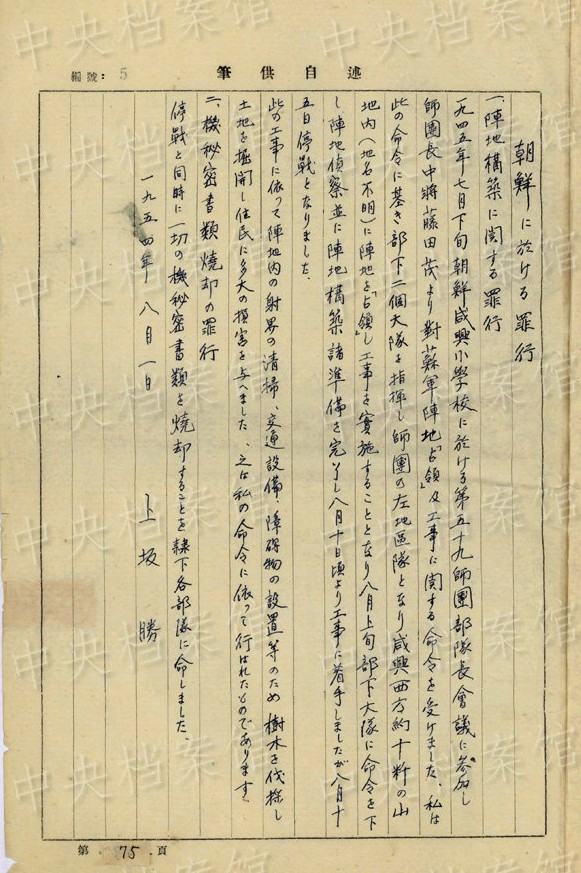 編號: 5
筆供自述
朝鮮に於ける罪行
一、陣地構築に関する罪行
一九四五年七月下旬朝鮮咸興小学校に於ける第五十九師團部隊長會議に参加し
師團長中將藤田茂より對蘇軍陣地「占領」及工事に関する命令を受けました、私は
此の命令に基き部下二個大隊を指揮し師團の左地區隊となり咸興西方約十粁の山
地内（地名不明）に陣地を「占領」し工事を實施することとなり八月上旬部下大隊に命令を下
し陣地偵察並に陣地構築諸準備を完了し八月十日頃より工事に着手しましたが八月十
五日停戦となりました、
此の工事に依って陣地内の射界の清掃、交通設備、障碍物の設置等のため樹木を伐採し
土地を掘開し住民に多大の損害を与へました、之は私の命令に依って行はれたものであります、
二、機秘密書類焼却の罪行
停戦と同時に一切の機秘密書類を焼却することを隷下各部隊に命しました、
一九五四年八月一日
上坂勝
第 75 頁
中央档案馆